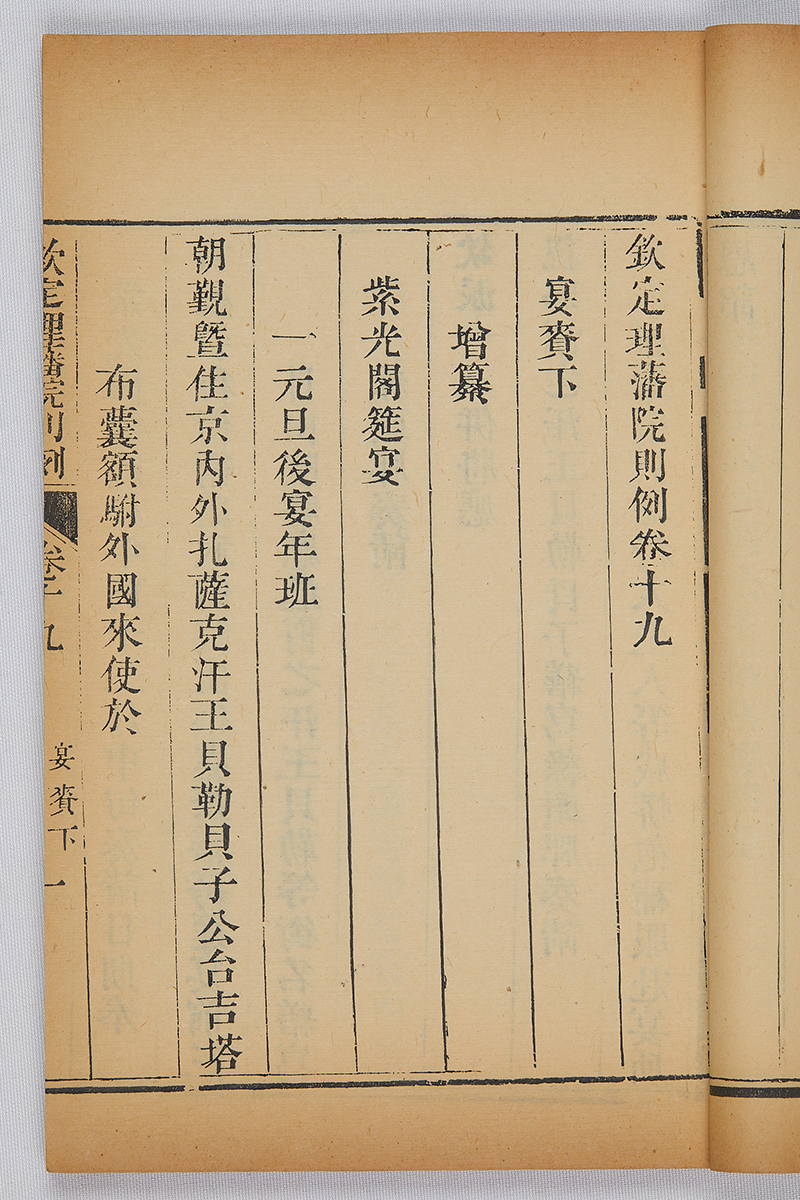 欽定理藩院則例卷十九
宴賚下
增纂
紫光閣筵宴
一元旦後宴年班
朝覲曁住京內外扎薩克汗王貝勒貝子公台吉塔
布囊額駙外國來使於
欽定理藩院則例
卷十九
宴賚下
一